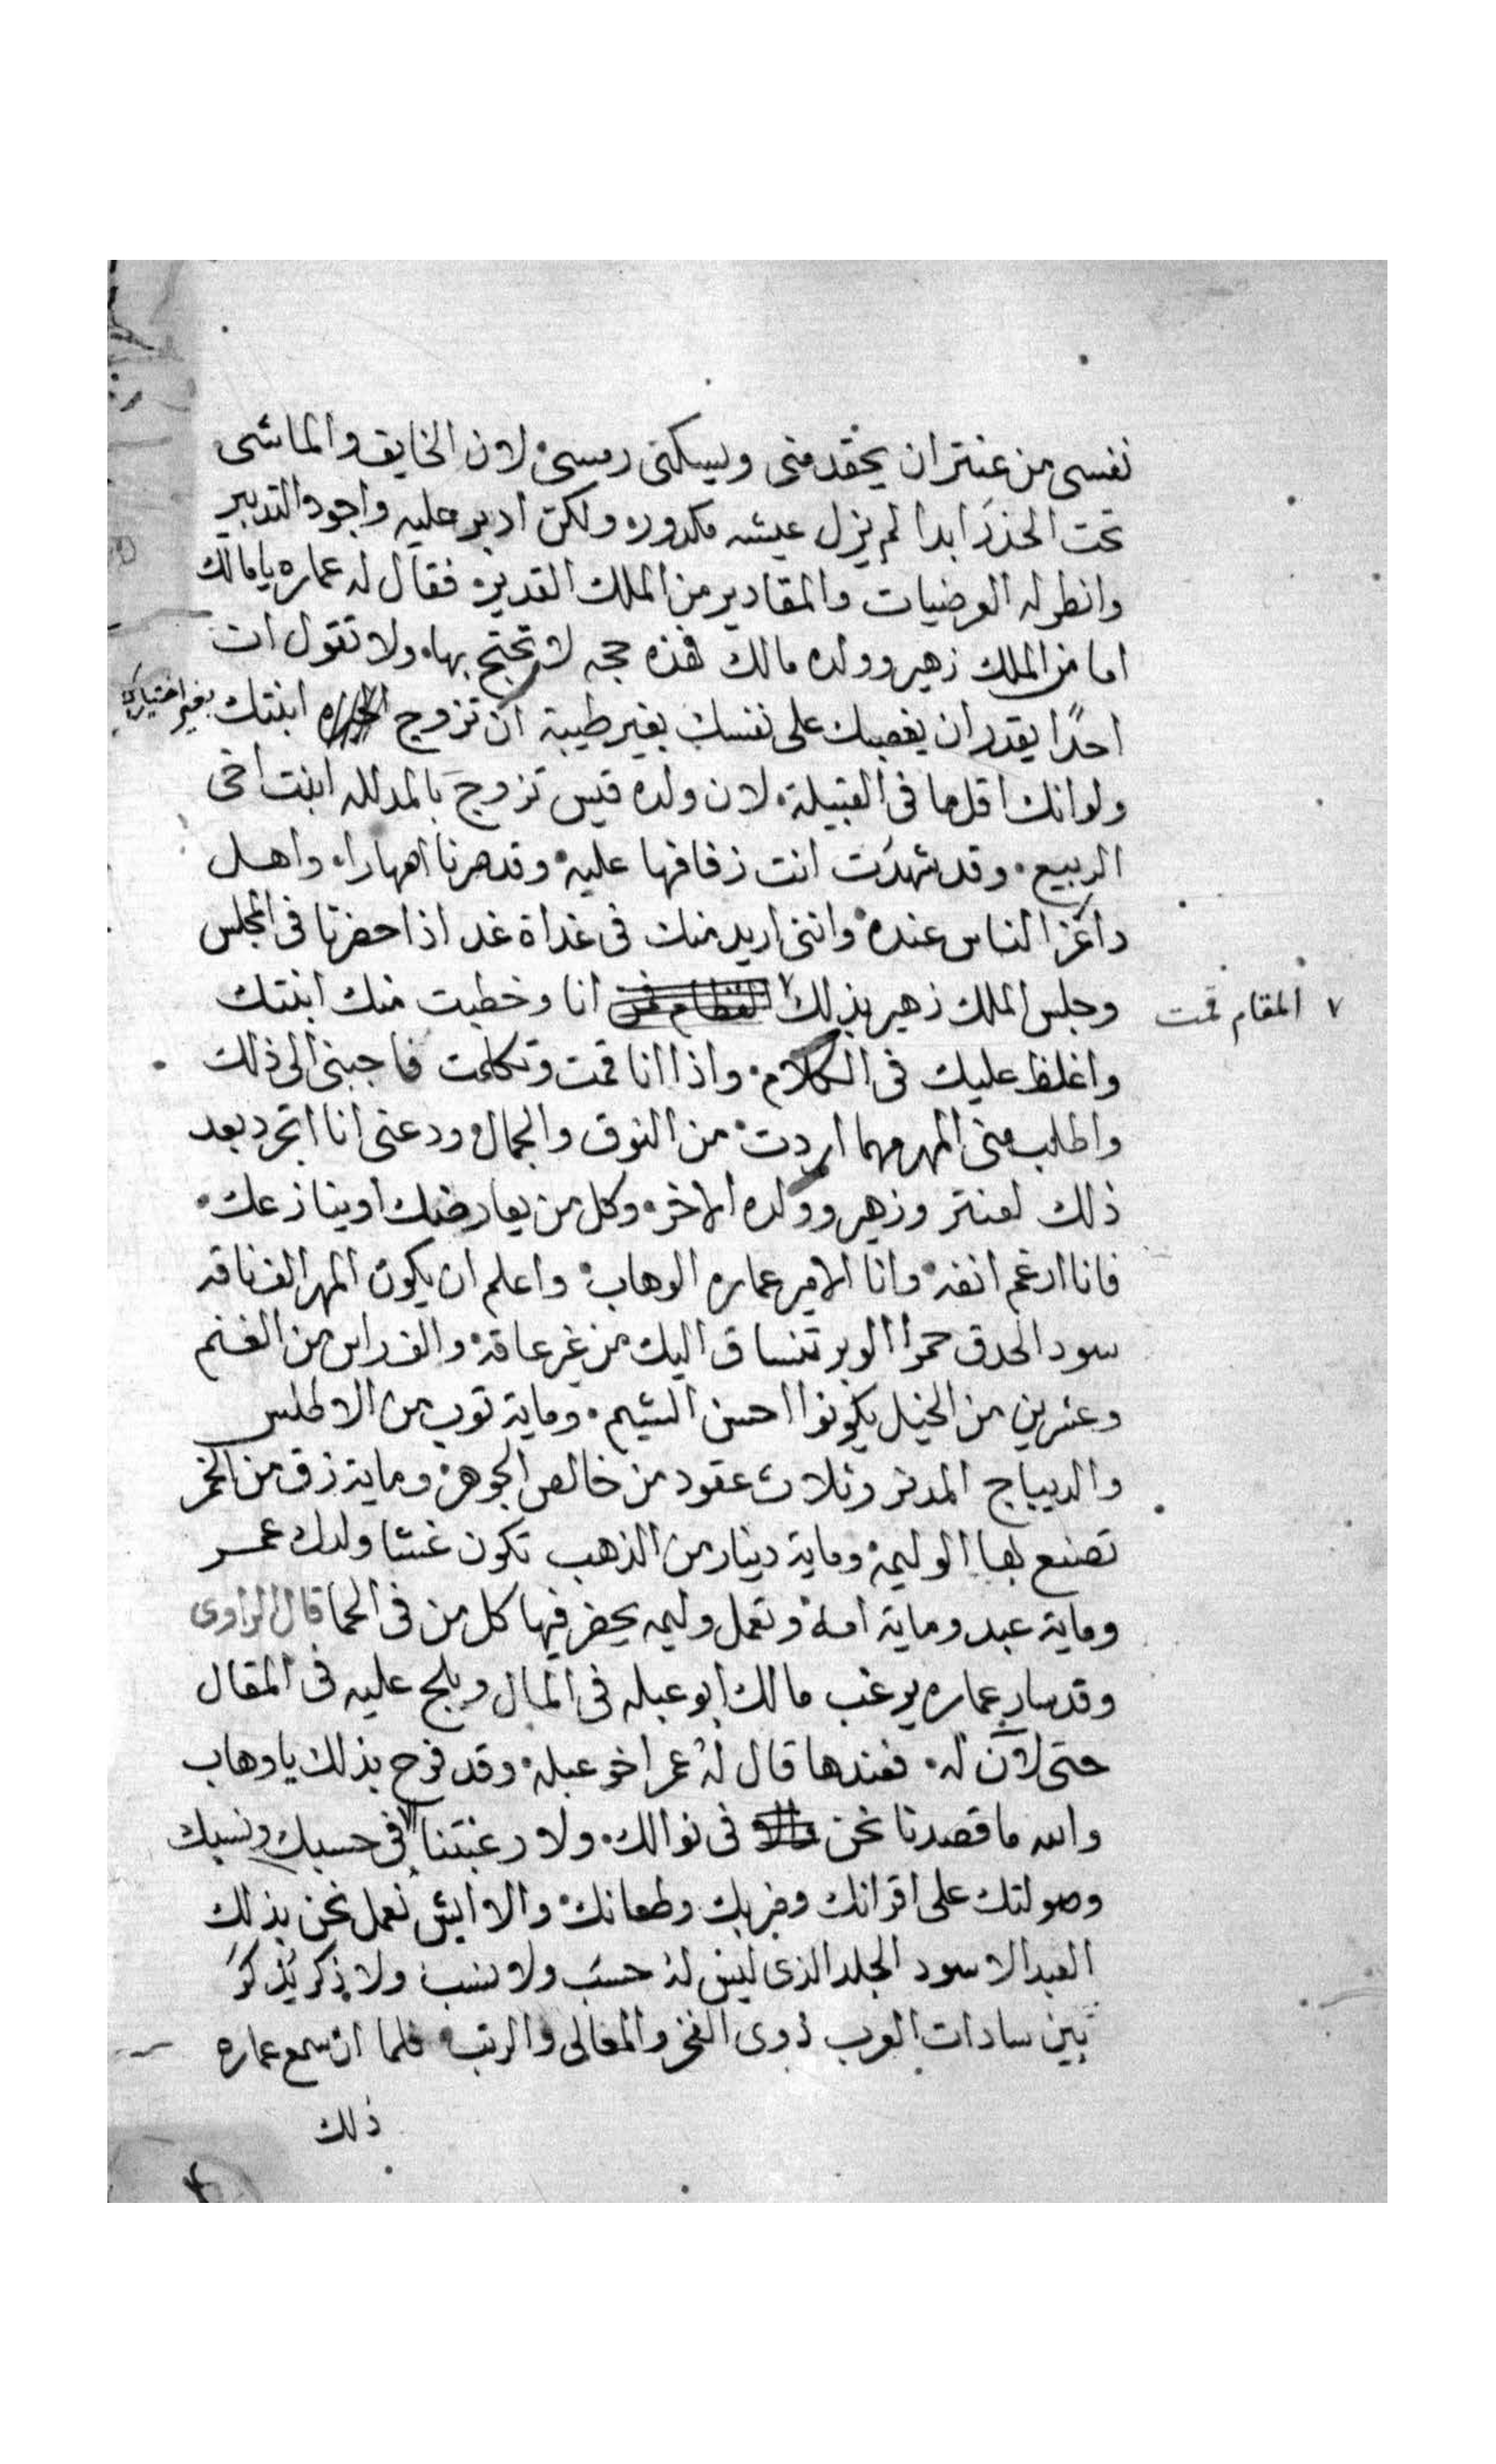 نفسى من عنتر ان يحقد منى ويسكنى رمسى لان الخايف والماشى
تحت الحذر ابدا لم يزل عيشه مكدوره ولكن ادبر عليه واجود التدبير
وانطر له العرضيات والمقادير من الملك القدير فقال له عماره يا مالك
اما من الملك زهير وولده مالك فهذه حجه لا تحتج بها ولا تقول ان
احدًا يقدر ان يغصبك على نفسك بغير طيبة ان تزوج ابنتك بغير اختيارك
ولو انك اقلها فى القبيلة لان ولده قيس تزوج بالمدلله ابنت اخى
الربيع وقد شهدت انت زفافها عليه وقد صرنا اصهارا واهل
واعز الناس عنده واننى اريد منك فى غداة غد اذا حضرنا فى المجلس
وجلس الملك زهير بذلك ٧ انا وخطبت منك ابنتك
٧ المقام قمت
واغلظ عليك فى الكلام واذا انا قمت وتكلمت فاجبنى الى ذلك
واطلب منى المهر مهما اردت من النوق والجمال ودعنى انا اتجرد بعد
ذلك لعنتر وزهير وولده الاخر وكل من يعارضك او ينازعك
فانا ارغم انفه وانا الامير عماره الوهاب واعلم ان يكون المهر الف ناقه
سود الحدق حمرا الوبر تنساق اليك من غير عاقة والف راس من الغنم
وعشرين من الخيل يكونوا احسن الشيم وماية توب من الاطلس
والديباج المدنر وثلاث عقود من خالص الجوهر وماية زق من الخمر
تصنع بها الوليمة وماية دينار من الذهب تكون غشا ولدك عمر
وماية عبد وماية امة وتعمل وليمه يحضر فيها كل من فى الحما قال الراوى
وقد سار عماره يرغب مالك ابو عبله فى المال ويلج عليه فى المقال
حتى لان له فعندها قال له عمر اخو عبله وقد فرح بذلك يا وهاب
والله ما قصدنا نحن فى نوالك ولا رغبتنا الا فى حسبك ونسبك
وصولتك على اقرانك وضربك وطعانك والا ايش نعمل نحن بذلك
العبد الاسود الجلد الذى ليس له حسب ولا نسب ولا ذكر يُذكر
بين سادات العرب ذوى الفخر والمعالى والرتب فلما ان سمع عماره
ذلك